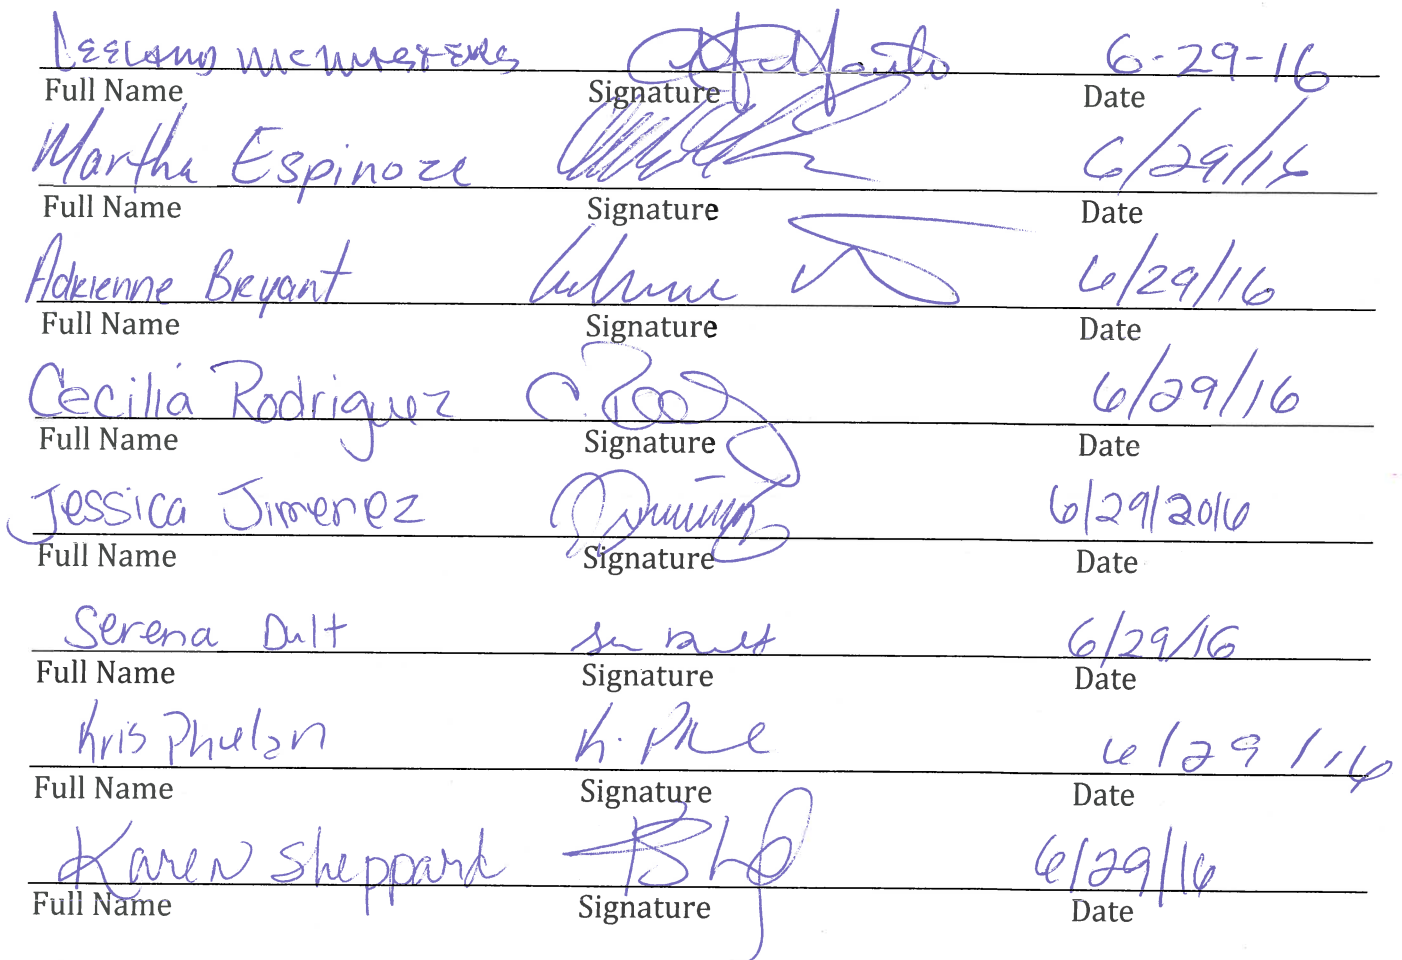 Leeland McMasters 6-29-16
Full Name Signature Date
Martha Espinoza 6/29/16
Full Name Signature Date
Adrienne Bryant 6/29/16
Full Name Signature Date
Cecilia Rodriguez 6/29/16
Full Name Signature Date
Jessica Jimenez 6/29/2016
Full Name Signature Date
Serena Dult 6/29/16
Full Name Signature Date
Kris Phelan 6/29/16
Full Name Signature Date
Karen Sheppard 6/29/16
Full Name Signature Date